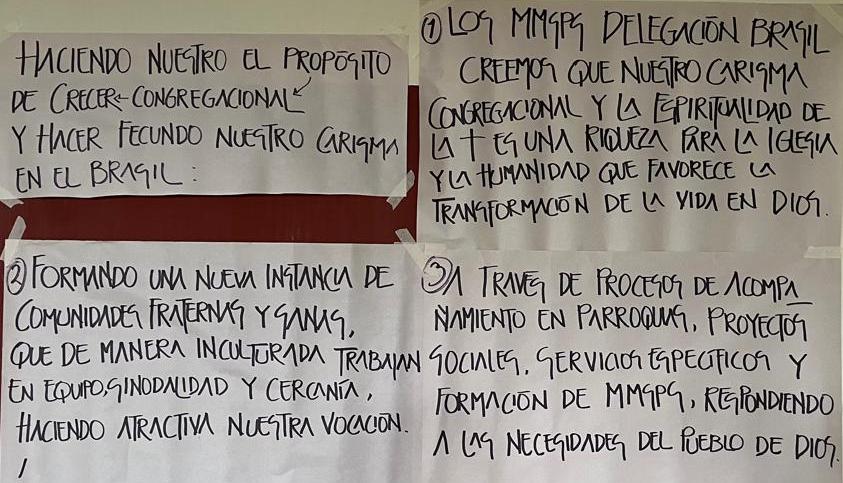 HACIENDO NUESTRO EL PROPÓSITO
DE CRECER ← CONGREGACIONAL ↙
Y HACER FECUNDO NUESTRO CARISMA
EN EL BRASIL:
① LOS MMSPS DELEGACIÓN BRASIL
CREEMOS QUE NUESTRO CARISMA
CONGREGACIONAL Y LA ESPIRITUALIDAD DE
LA † ES UNA RIQUEZA PARA LA IGLESIA
Y LA HUMANIDAD QUE FAVORECE LA
TRANSFORMACIÓN DE LA VIDA EN DIOS.
② FORMANDO UNA NUEVA INSTANCIA DE
COMUNIDADES FRATERNAS Y SANAS,
QUE DE MANERA INCULTURADA TRABAJAN
EN EQUIPO, SINODALIDAD Y CERCANÍA,
HACIENDO ATRACTIVA NUESTRA VOCACIÓN.
③ A TRAVÉS DE PROCESOS DE ACOMPA_
ÑAMIENTO EN PARROQUIAS, PROYECTOS
SOCIALES, SERVICIOS ESPECÍFICOS Y
FORMACIÓN DE MMSPS, RESPONDIENDO
A LAS NECESIDADES DEL PUEBLO DE DIOS.